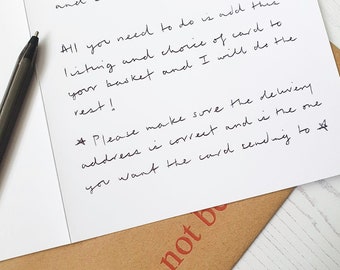 All you need to do is add this
listing and choice of card to
your basket and I will do the
rest!
* Please make sure the delivery
address is correct and is the one
you want the card sending to *
not be